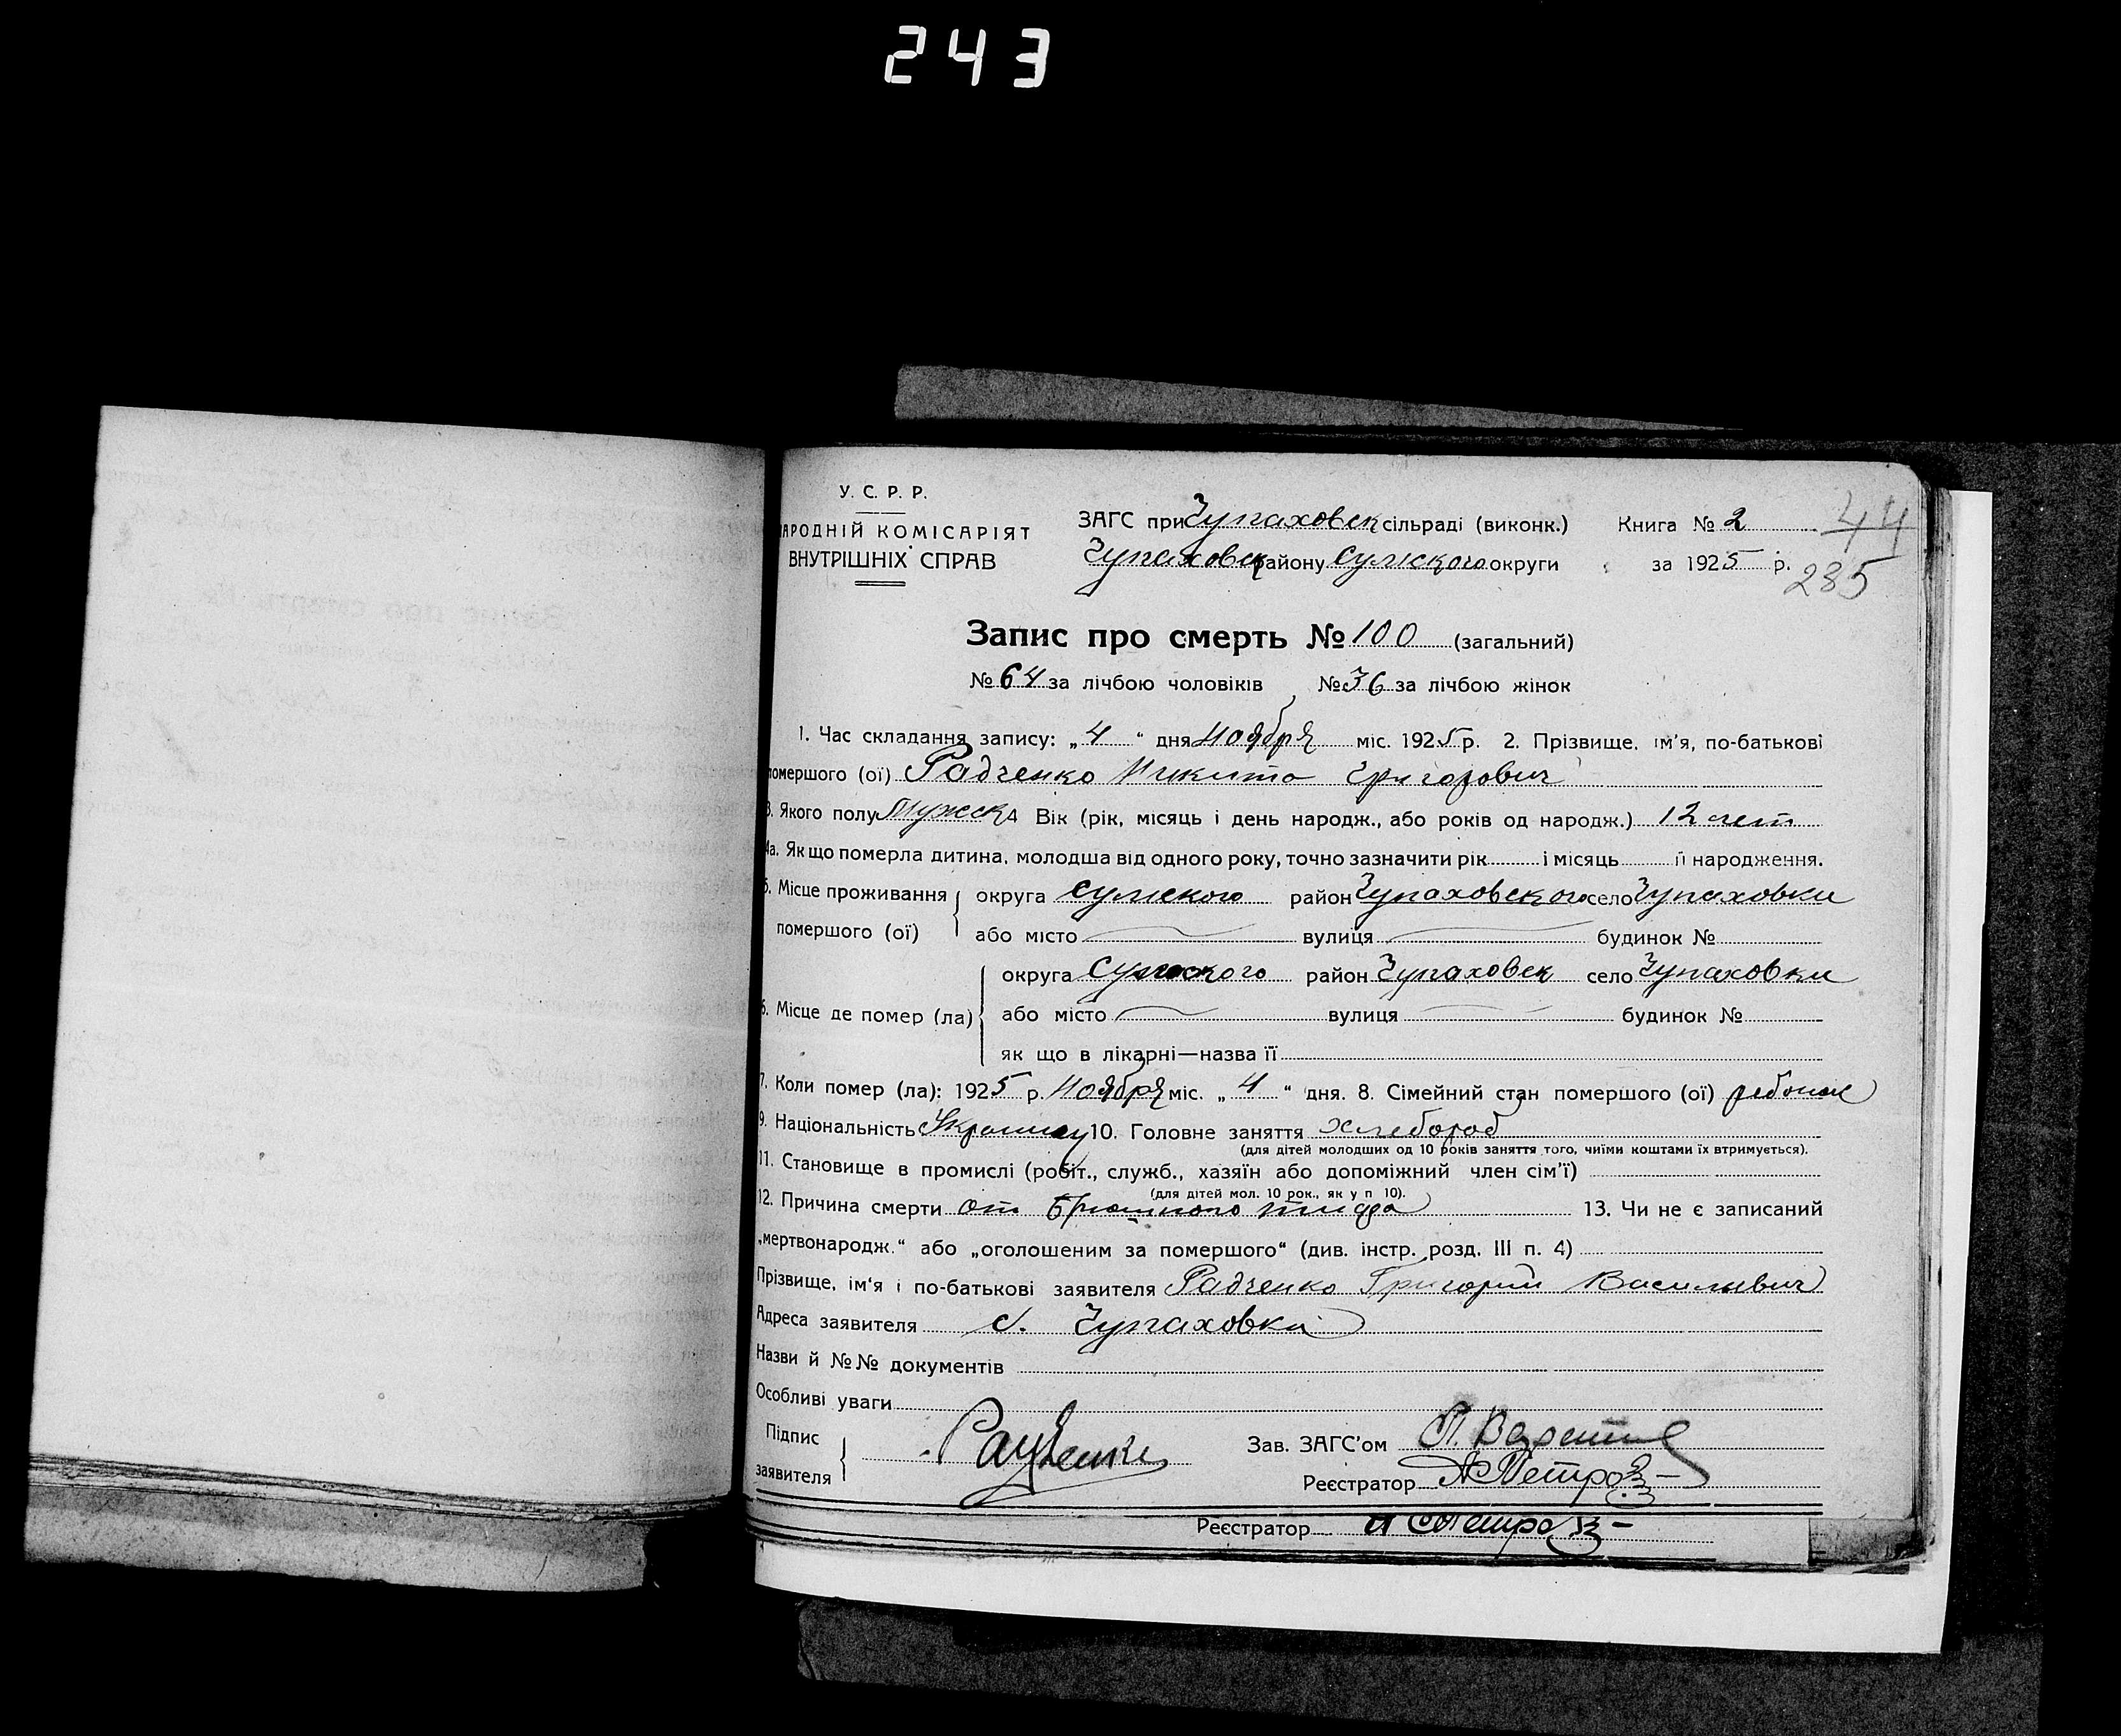 243
У. С. Р. Р.
АРОДНІЙ КОМІСАРІЯТ
ВНУТРІШНІХ СПРАВ
ЗАГС при Чупаховск сільраді (виконк.) Книга № 2 44
Чупаховск району Сумского округи за 1925 р. 285
Запис про смерть № 100 (загальний)
№ 64 за лічбою чоловіків № 36 за лічбою жінок
1. Час складання запису: „4“ дня Ноября міс. 1925 р. 2. Прізвище, ім'я, по-батькові
помершого (ої) Радченко Никита Григорович
3. Якого полу Мужск 4 Вік (рік, місяць і день народж., або років од народж.) 12 лет
4а. Як що померла дитина, молодша від одного року, точно зазначити рік і місяць її народження.
5. Місце проживання округа Сумского район Чупаховского село Чупаховки
помершого (ої) або місто вулиця будинок №
округа Сумского район Чупаховск село Чупаховки
6. Місце де помер (ла) або місто вулиця будинок №
як що в лікарні—назва її
7. Коли помер (ла): 1925 р. Ноября міс. „4“ дня. 8. Сімейний стан помершого (ої) ребонок
9. Національність 10. Головне заняття хлебороб
(для дітей молодших од 10 років заняття того, чиїми коштами їх втримується).
11. Становище в промислі (робіт., служб., хазяїн або допоміжний член сім'ї)
(для дітей мол. 10 рок., як у п 10).
12. Причина смерти от Брюшного тифа 13. Чи не є записаний
„мертвонародж.“ або „оголошеним за помершого“ (див. інстр. розд. III п. 4)
Прізвище, ім'я і по-батькові заявителя Радченко Григорий Васильевич
Адреса заявителя с. Чупаховка
Назви й №№ документів
Особливі уваги
Підпис
заявителя Радченко
Зав. ЗАГС'ом П.
Реєстратор
Реєстратор